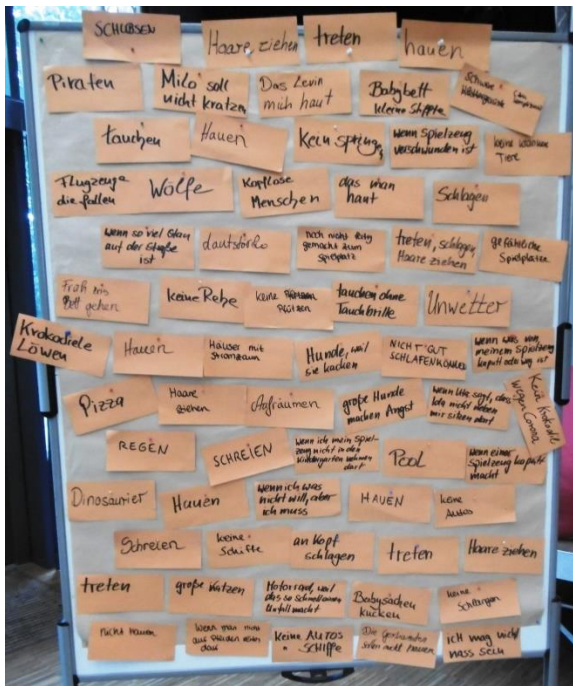 SCHUBSEN
Haare ziehen
treten
hauen
Piraten
Milo soll
nicht kratzen
Das Levin
mich haut
Babybett
kleine Shippe
tauchen
Hauen
Kein springe
wenn Spielzeug
verschwunden ist
keine
Tiere
Flugzeuge
die fallen
Wölfe
Kopflose
Menschen
das man
haut
Schlagen
wenn so viel Stau
auf der Straße
ist
noch nicht fertig
gemacht zum
Spielplatz
treten, schlagen,
Haare ziehen
gefährliche
Spielplätze
Früh ins
Bett gehen
keine Rehe
keine
Pfützen
tauchen ohne
Tauchbrille
Unwetter
Krokodiele
Löwen
Hauen
Häuser mit
Stromzaun
Hunde, weil
sie kacken
NICHT GUT
SCHLAFEN KÖNNEN
wenn was von
meinem Spielzeug
kaputt oder weg ist
Pizza
Haare
ziehen
Aufräumen
große Hunde
machen Angst
wenn Ute sagt, das
Ida nicht neben
mir sitzen darf
Kein
wegen Corona
REGEN
SCHREIEN
wenn ich mein Spiel-
zeug nicht in den
Kindergarten nehmen
darf
Pool
wenn einer
Spielzeug kaputt
macht
Dinosaurier
Hauen
wenn ich was
nicht will, aber
ich muss
HAUEN
keine
Autos
Schreien
keine
Schiffe
an Kopf
schlagen
treten
Haare ziehen
treten
große Katzen
Motorrad, weil
das so schnell einen
Unfall macht
Babysachen
kucken
keine
Schlangen
nicht hauen
wenn man nicht
auf Pferden reiten
darf
keine AUTOS
SCHIFFE
Die
sollen nicht hauen
ich mag nicht
nass sein